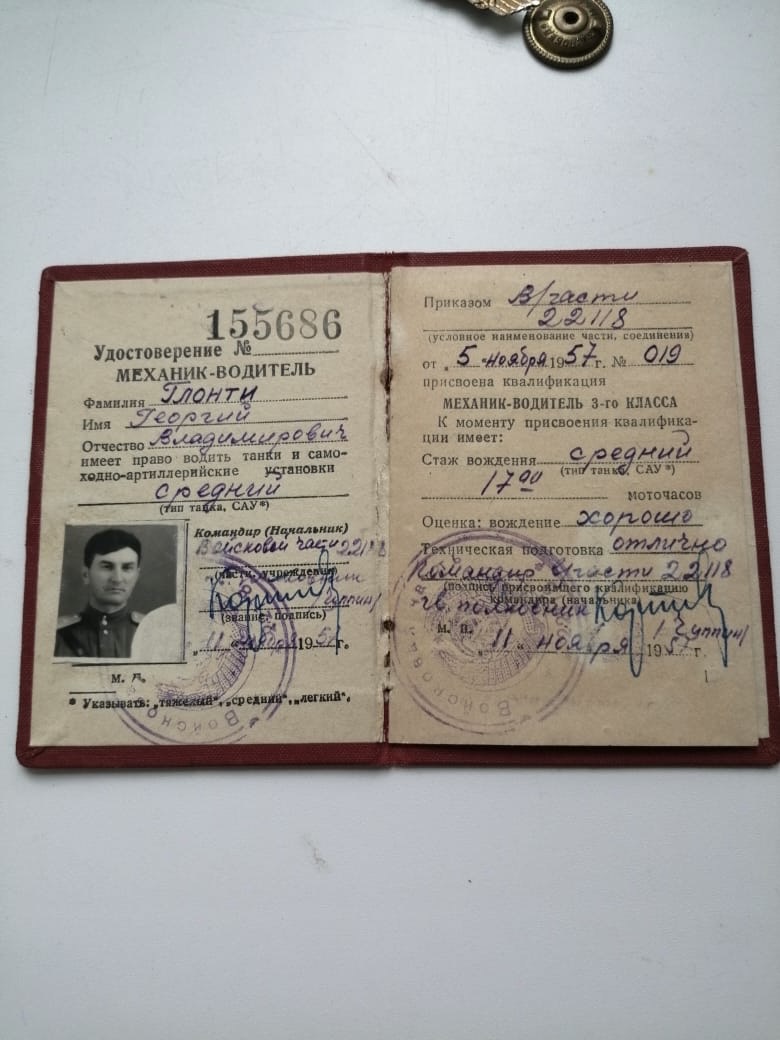 155686
Удостоверение №
МЕХАНИК-ВОДИТЕЛЬ
Фамилия Глонти
Имя Георгий
Отчество Владимирович
имеет право водить танки и само-
ходно-артиллерийские установки
средний
(тип танка, САУ*)
Командир (Начальник)
Войсковой части 22118
(части, учреждения)
(звание, подпись)
„11“ 195 г.
М. П.
* Указывать: „тяжелый“, „средний“, „легкий“.
Приказом В/части
22118
(условное наименование части, соединения)
от „5“ ноября 1957 г. № 019
присвоена квалификация
МЕХАНИК-ВОДИТЕЛЬ 3-го КЛАССА
К моменту присвоения квалифика-
ции имеет:
Стаж вождения средний
(тип танка, САУ*)
17 00 моточасов
Оценка: вождение хорошо
Техническая подготовка отлично
Командир части 22118
(подпись присвоившего квалификацию
командира (начальника)
гв. полковник
М. П. „11“ ноября 1957 г.